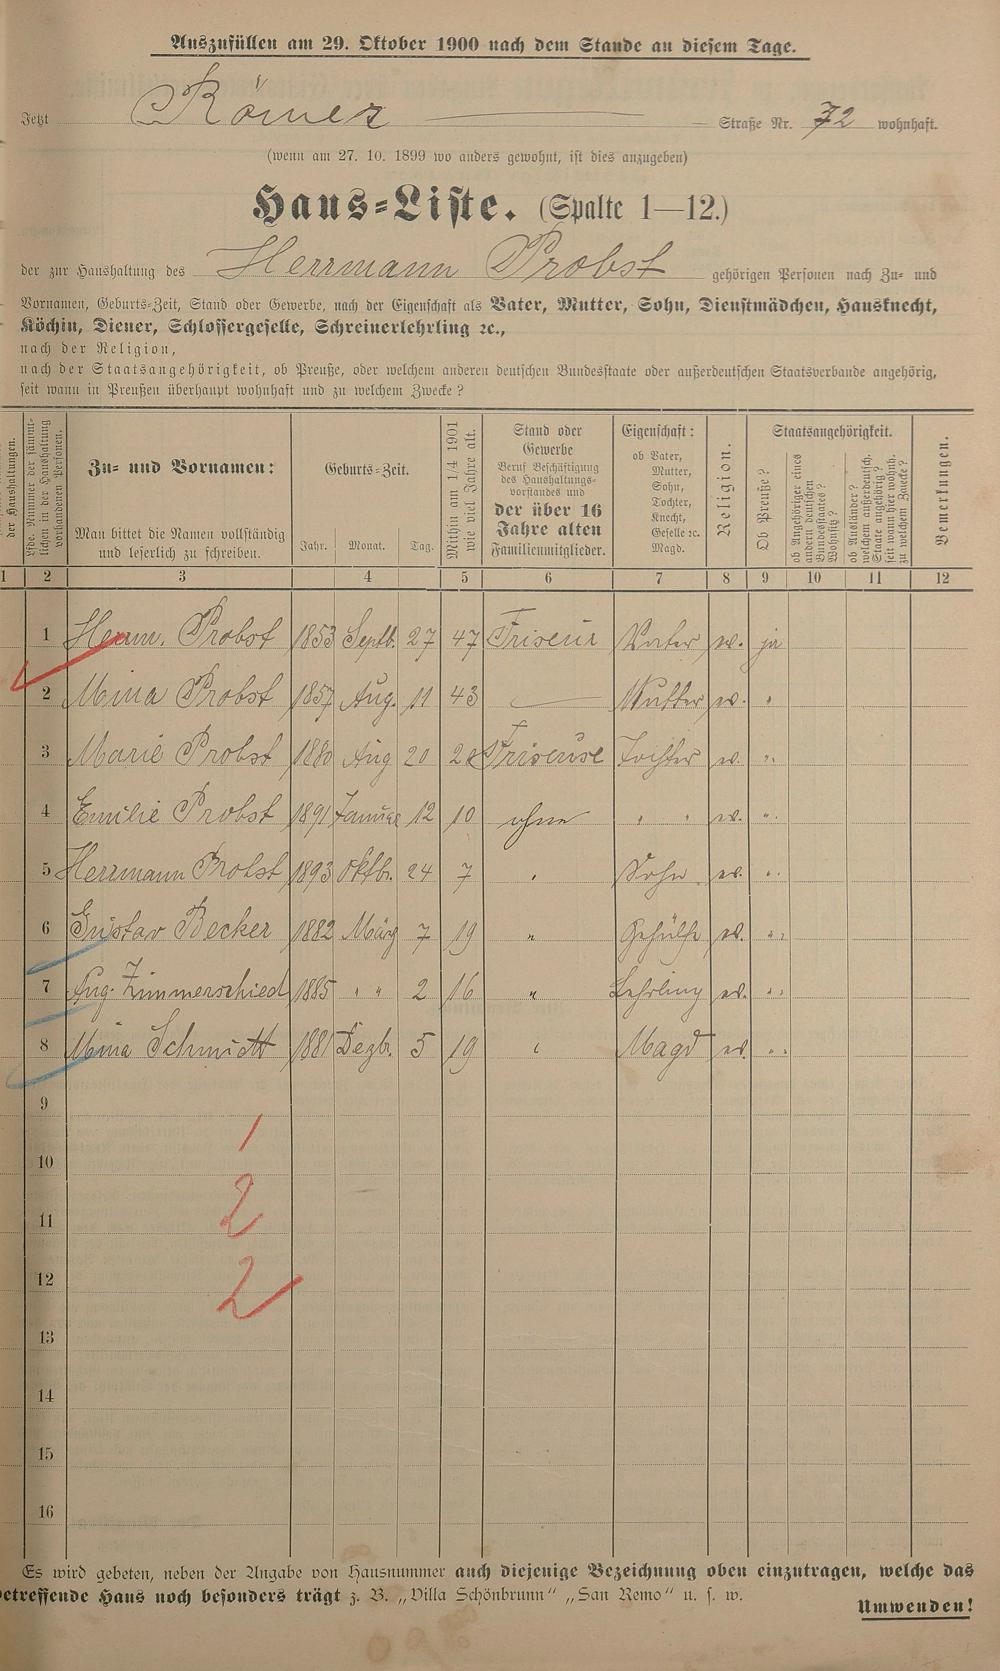 Auszufüllen am 29. Oktober 1900 nach dem Stande an diesem Tage.
Jetzt Römer Straße Nr. 72 wohnhaft.
(wenn am 27. 10. 1899 wo anders gewohnt, ist dies anzugeben)
Haus-Liste. (Spalte 1—12.)
der zur Haushaltung des Herrmann Probst gehörigen Personen nach Zu- und
Vornamen, Geburts-Zeit, Stand oder Gewerbe, nach der Eigenschaft als Vater, Mutter, Sohn, Dienstmädchen, Hausknecht,
Köchin, Diener, Schlossergeselle, Schreinerlehrling ꝛc.,
nach der Religion,
nach der Staatsangehörigkeit, ob Preuße, oder welchem anderen deutschen Bundesstaate oder außerdeutschen Staatsverbande angehörig,
seit wann in Preußen überhaupt wohnhaft und zu welchem Zwecke?
der Haushaltungen.
Lfde. Nummer der sämmt-
lichen in der Haushaltung
vorhandenen Personen.
Zu- und Vornamen:
Man bittet die Namen vollständig
und leserlich zu schreiben.
Geburts-Zeit.
Jahr. Monat. Tag.
Mithin am 1/4 1901
wie viel Jahre alt.
Stand oder
Gewerbe
Beruf Beschäftigung
des Haushaltungs-
vorstandes und
der über 16
Jahre alten
Familienmitglieder.
Eigenschaft:
ob Vater,
Mutter,
Sohn,
Tochter,
Knecht,
Geselle ꝛc.
Magd.
Religion.
Staatsangehörigkeit.
Ob Preuße?
ob Angehöriger eines
andern deutschen
Bundesstaates?
Wohnsitz?
ob Ausländer?
welchem außerdeutsch.
Staate angehörig?
seit wann hier wohnh.
zu welchem Zwecke?
Bemerkungen.
1 2 3 4 5 6 7 8 9 10 11 12
1 Herm. Probst 1853 Septb. 27 47 Friseur Vater ev. ja
2 Mina Probst 1857 Aug. 11 43 — Mutter ev. "
3 Marie Probst 1880 Aug 20 20 Friseuse Tochter ev. "
4 Emilie Probst 1891 Januar 12 10 ohne " " ev. "
5 Herrmann Probst 1893 Oktb. 24 7 " Sohn ev. "
6 Gustav Becker 1882 März 7 19 " Gehülfe ev. "
7 Aug. Zimmerschied 1885 " " 2 16 " Lehrling ev. "
8 Mina Schmidt 1881 Dezb. 5 19 " Magd ev. "
9
1
10
2
11
12
2
13
14
15
16
Es wird gebeten, neben der Angabe von Hausnummer auch diejenige Bezeichnung oben einzutragen, welche das
betreffende Haus noch besonders trägt z. B. „Villa Schönbrunn“ „San Remo“ u. s. w.
Umwenden!